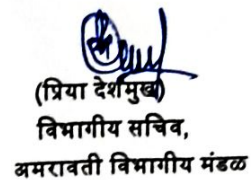 (प्रिया देशमुख)
विभागीय सचिव,
अमरावती विभागीय मंडळ